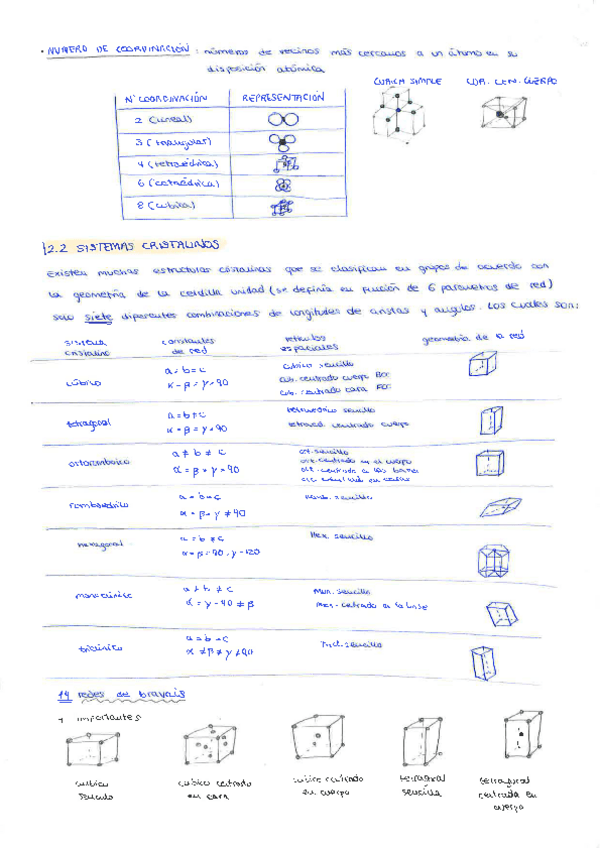 · NUMERO DE COORDINACIÓN: números de vecinos más cercanos a un átomo en su
disposición atómica
CÚBICA SIMPLE CÚB. CEN. CUERPO
Nº COORDINACIÓN REPRESENTACIÓN
2 (lineal)
3 (triangular)
4 (tetraédrica)
6 (octaédrica)
8 (cubica)
12.2 SISTEMAS CRISTALINOS
Existen muchas estructuras cristalinas que se clasifican en grupos de acuerdo con
la geometría de la celdilla unidad (se definía en función de 6 parámetros de red)
solo siete diferentes combinaciones de longitudes de aristas y angulos. Los cuales son:
sistema cristalino constantes de red retículos espaciales geometría de la red
cúbico a = b = c cúbico sencillo
α = β = γ = 90 cub. centrado cuerpo BCC
cub. centrado cara FCC
tetragonal a = b ≠ c sencillo
α = β = γ = 90 centrado cuerpo
ortorombico a ≠ b ≠ c ort. sencillo
α = β = γ = 90 ort. centrado en el cuerpo
ort. centrado en las bases
romboedrico a = b = c romb. sencillo
α = β = γ ≠ 90
hexagonal a = b ≠ c Hex. sencillo
α = β = 90, γ = 120
monoclinico a ≠ b ≠ c Mon. sencillo
α = γ = 90 ≠ β mon. centrado en la base
triclinico Tricl. sencillo
α ≠ β ≠ γ ≠ 90
14 redes de bravais
+ importantes
cubico sencillo cubico centrado en cara cubico centrado en cuerpo tetragonal sencilla tetragonal centrada en cuerpo